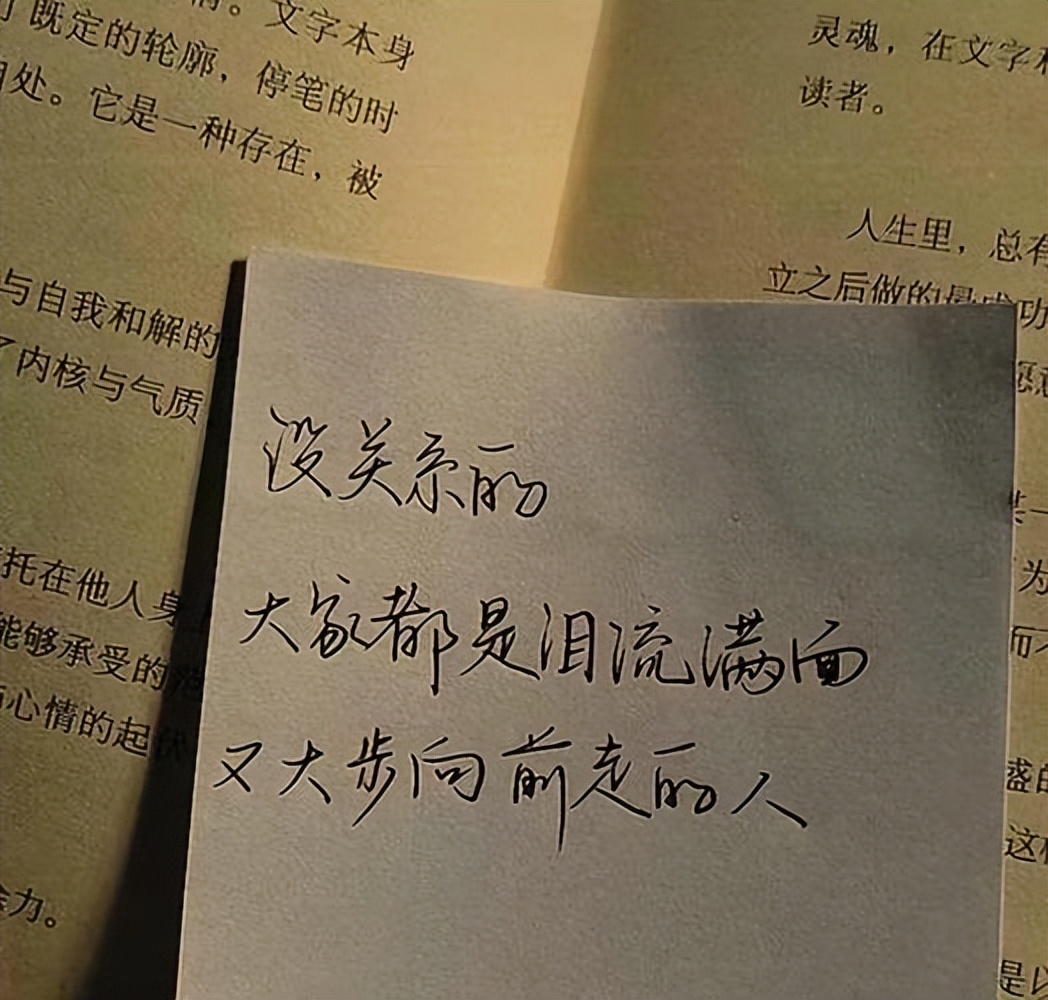 情。文字本身
既定的轮廓，停笔的时
相处。它是一种存在，被
与自我和解的
了内核与气质
托在他人身
能够承受的
心情的起伏
力。
灵魂，在文字
读者。
人生里，总有
立之后做的最成功
愿意
某一
为
而不
盛的
这
是以
没关系的
大家都是泪流满面
又大步向前走的人